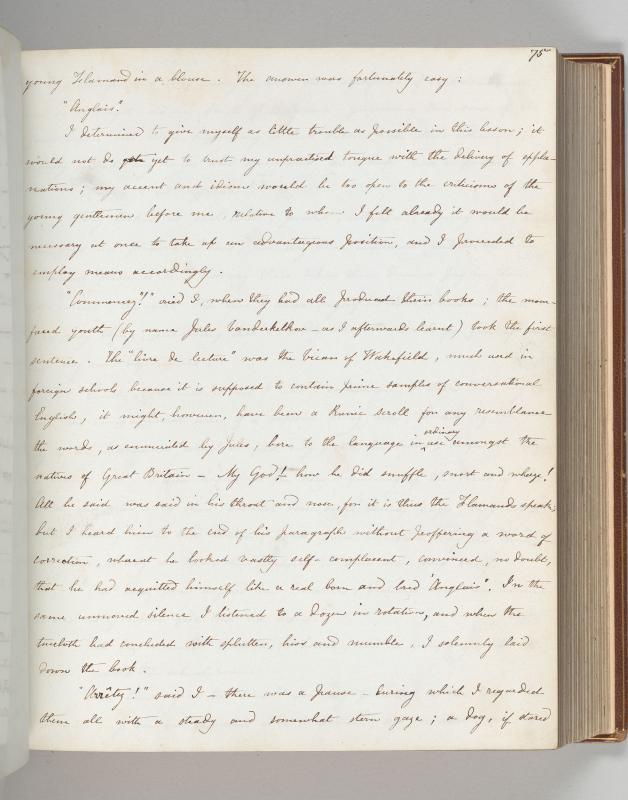 75
young Flamand in a blouse. The answer was fortunately easy:
"Anglais".
I determined to give myself as little trouble as possible in this lesson; it
would not do yet to trust my unpractised tongue with the delivery of expla-
nations; my accent and idiom would be too open to the criticisms of the
young gentlemen before me, relative to whom I felt already it would be
necessary at once to take up an advantageous position, and I proceeded to
employ means accordingly.
"Commencez"!" cried I, when they had all produced their books; the moon-
faced youth (by name Jules Vanderkelkov – as I afterwards learnt) took the first
sentence. The "livre de lecture" was the Vicar of Wakefield, much used in
foreign schools because it is supposed to contain prime samples of conversational
English, it might, however, have been a Runic scroll for any resemblance
the words, as enunciated by Jules, bore to the language in ordinary use amongst the
natives of Great Britain – My God! how he did snuffle, snort and wheeze!
All he said was said in his throat and nose, for it is thus the Flamands speak;
but I heard him to the end of his paragraph without proffering a word of
correction, whereat he looked vastly self-complacent, convinced, no doubt,
that he had acquitted himself like a real born and bred "Anglais". In the
same unmoved silence I listened to a dozen in rotation, and when the
twelfth had concluded with splutter, hiss and mumble, I solemnly laid
down the book.
"Arrêtez!" said I – there was a pause – during which I regarded
them all with a steady and somewhat stern gaze; a dog, if stared